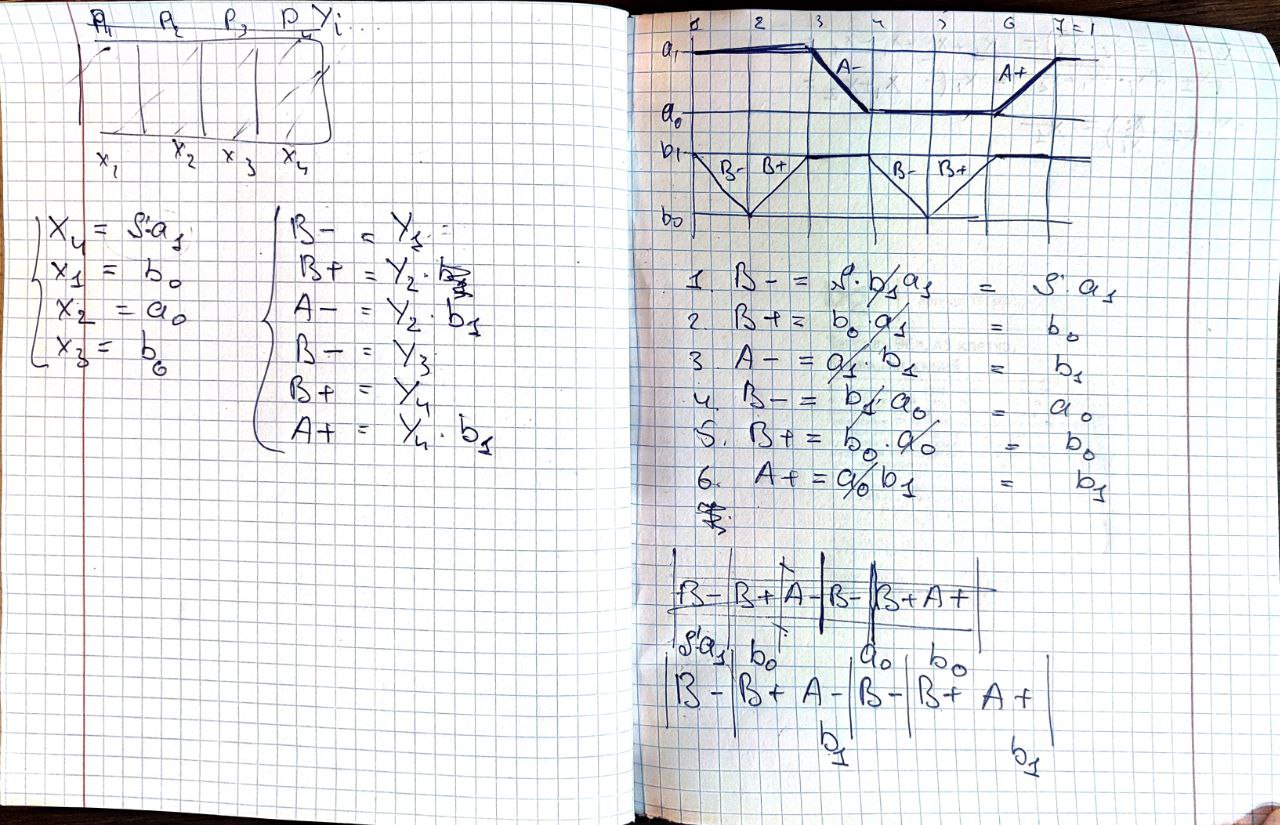 P₁ P₂ P₃ P₄ Yᵢ...
x₁ x₂ x₃ x₄
X₄ = S·a₁
x₁ = b₀
x₂ = a₀
x₃ = b₀
B- = Y₁
B+ = Y₂·
A- = Y₂·b₁
B- = Y₃
B+ = Y₄
A+ = Y₄·b₁
1 2 3 4 5 6 7=1
a₁ A- A+
a₀
b₁ B- B+ B- B+
b₀
1. B- = S·b₁a₁ = S·a₁
2. B+ = b₀·a₁ = b₀
3. A- = a₁·b₁ = b₁
4. B- = b₁·a₀ = a₀
5. B+ = b₀·a₀ = b₀
6. A+ = a₀b₁ = b₁
|B-|B+|A-|B-|B+A+|
S·a₁ b₀ a₀ b₀
|B-|B+ A-|B-|B+ A+|
b₁ b₁